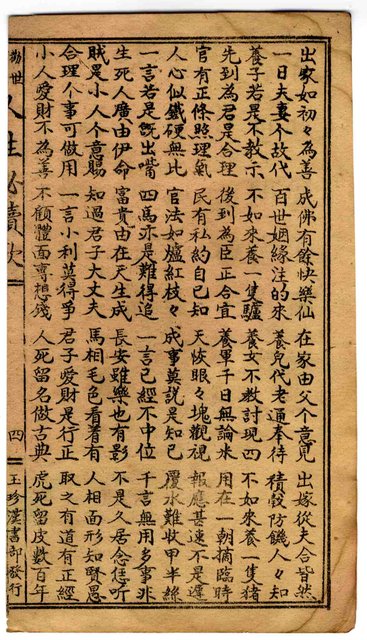 出家如初々為善 成佛有餘快樂仙 在家由父个意見 出嫁從夫合皆然
一日夫妻个故代 百世姻緣注的來 養兒代老通奉待 積穀防饑人々知
養子若是不教示 不如來養一隻驢 養女不教討現四 不如來養一隻猪
先到為君是合理 後到為臣正合宜 養軍千日無論米 用在一朝摘臨時
官有正條照理氣 民有私約自己知 天恢眼々塊觀視 報應甚速不是遲
人心似鐵硬無比 官法如爐紅枝々 成事莫說是知已 覆水難收甲半絲
一言若是既出嘴 四馬亦是難得追 一言已經不中位 千言無用多事非
生死人廣由伊命 富貴由在天生成 長安雖樂也有影 不是久居念恁听
賊是小人个意賜 知過君子大丈夫 馬相毛色看着有 人相面形知賢愚
合理个事可做用 一言小利莫得爭 君子愛財是行正 取之有道有正經
小人愛財不為善 不顧體面專想錢 人死留名做古典 虎死留皮數百年
勸世 人生必讀歌 四 玉珍漢書部發行